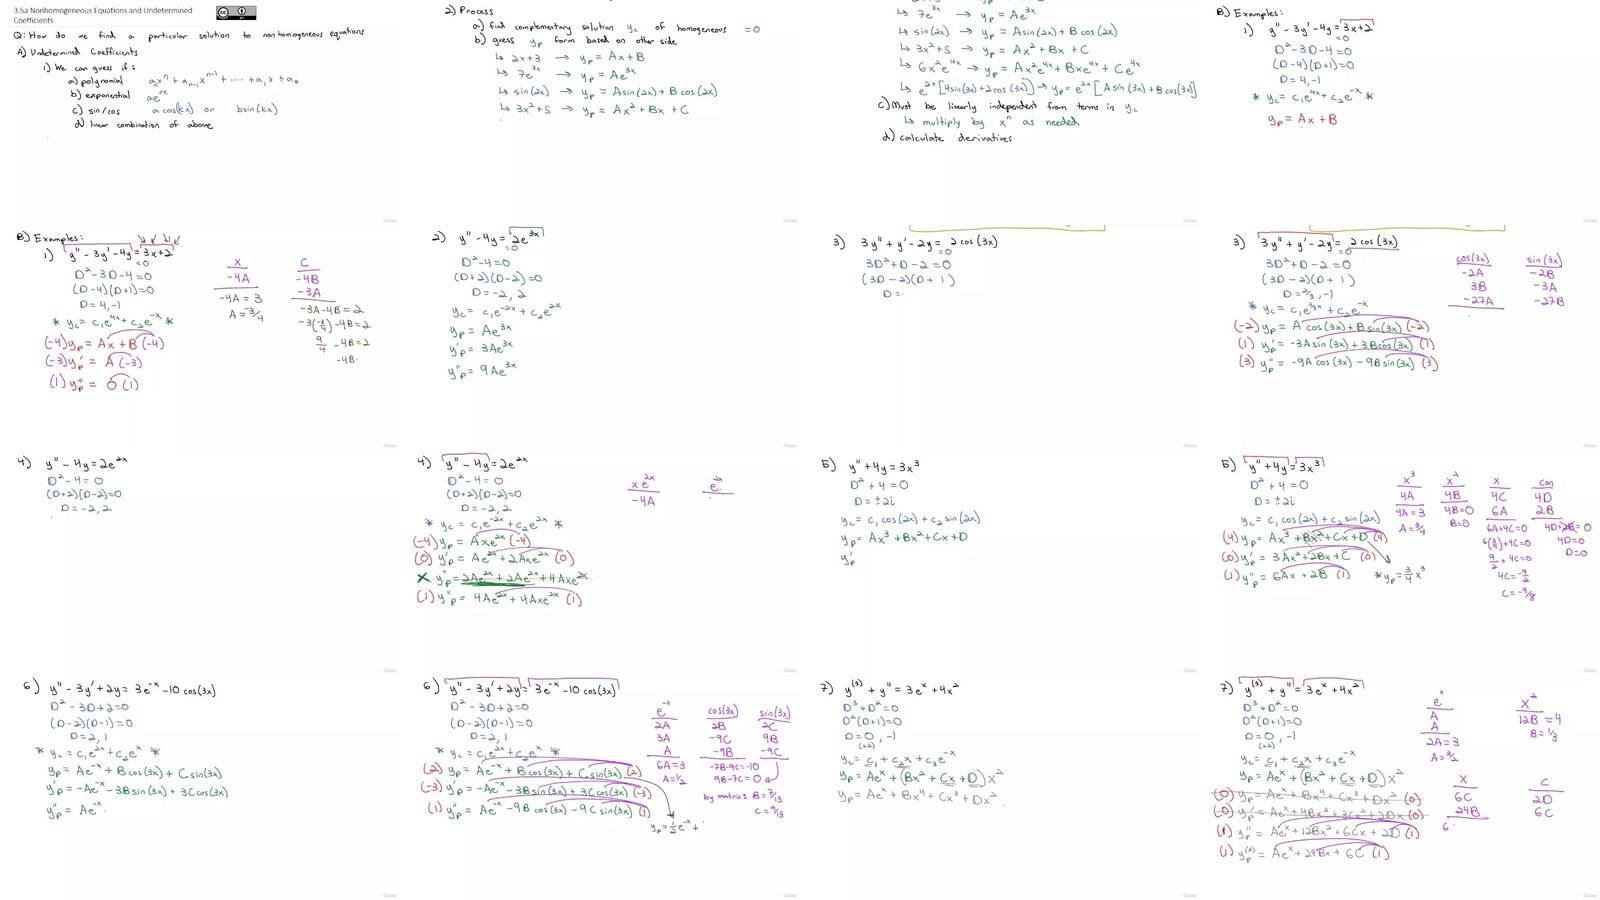 3.5a Nonhomogeneous Equations and Undetermined
Coefficients
Q: How do we find a particular solution to nonhomogeneous equations
A) Undetermined Coefficients
1) We can guess if:
a) polynomial aₙxⁿ + aₙ₋₁xⁿ⁻¹ + .... + a₁x + a₀
b) exponential ae^(rx)
c) sin/cos a cos(kx) or b sin(kx)
d) linear combination of above
2) Process
a) find complementary solution y_c of homogeneous =0
b) guess y_p form based on other side
↳ 2x+3 → y_p = Ax+B
↳ 7e^(3x) → y_p = Ae^(3x)
↳ sin(2x) → y_p = Asin(2x) + Bcos(2x)
↳ 3x²+5 → y_p = Ax² + Bx + C
↳ 7e^(3x) → y_p = Ae^(3x)
↳ sin(2x) → y_p = Asin(2x) + Bcos(2x)
↳ 3x²+5 → y_p = Ax² + Bx + C
↳ 6x²e^(4x) → y_p = Ax²e^(4x) + Bxe^(4x) + Ce^(4x)
↳ e^(2x)[4sin(3x)+2cos(3x)] → y_p = e^(2x)[Asin(3x)+Bcos(3x)]
c) Must be linearly independent from terms in y_c
↳ multiply by xⁿ as needed
d) calculate derivatives
B) Examples:
1) y''-3y'-4y=3x+2
=0
D²-3D-4=0
(D-4)(D+1)=0
D=4,-1
* y_c = c₁e^(4x) + c₂e^(-x) *
y_p = Ax+B
B) Examples:
1) y''-3y'-4y=3x+2
=0
D²-3D-4=0
(D-4)(D+1)=0
D=4,-1
* y_c = c₁e^(4x) + c₂e^(-x) *
(-4) y_p = Ax+B (-4)
(-3) y_p' = A (-3)
(1) y_p'' = 0 (1)
x
-4A
-4A=3
A=-3/4
C
-4B
-3A
-3A-4B=2
-3(-3/4)-4B=2
9/4 -4B=2
-4B
2) y''-4y=2e^(3x)
=0
D²-4=0
(D+2)(D-2)=0
D=-2,2
y_c = c₁e^(-2x) + c₂e^(2x)
y_p = Ae^(3x)
y_p' = 3Ae^(3x)
y_p'' = 9Ae^(3x)
3) 3y''+y'-2y=2cos(3x)
=0
3D²+D-2=0
(3D-2)(D+1)
D=
3) 3y''+y'-2y=2cos(3x)
=0
3D²+D-2=0
(3D-2)(D+1)
D=2/3,-1
(-2) y_p = A cos(3x)+Bsin(3x) (-2)
(1) y_p' = -3Asin(3x)+3Bcos(3x) (1)
(3) y_p'' = -9A cos(3x)-9Bsin(3x) (3)
cos(3x)
-2A
3B
-27A
sin(3x)
-2B
-3A
-27B
4) y''-4y=2e^(2x)
D²-4=0
(D+2)(D-2)=0
D=-2,2
4) y''-4y=2e^(2x)
D²-4=0
(D+2)(D-2)=0
D=-2,2
* y_c = c₁e^(-2x) + c₂e^(2x) *
(-4) y_p = Axe^(2x) (-4)
(0) y_p' = Ae^(2x) + 2Axe^(2x) (0)
x y_p'' = 2Ae^(2x) + 2Ae^(2x) + 4Axe^(2x)
(1) y_p'' = 4Ae^(2x) + 4Axe^(2x) (1)
xe^(2x)
-4A
e^(2x)
5) y''+4y=3x³
D²+4=0
D=±2i
y_c = c₁cos(2x) + c₂sin(2x)
y_p = Ax³+Bx²+Cx+D
y_p'
5) y''+4y=3x³
D²+4=0
D=±2i
y_c = c₁cos(2x) + c₂sin(2x)
(4) y_p = Ax³+Bx²+Cx+D (4)
(0) y_p' = 3Ax²+2Bx+C (0)
(1) y_p'' = 6Ax+2B (1)
* y_p = 3/4 x³
x³
4A
4A=3
A=3/4
x²
4B
4B=0
B=0
x
4C
6A
6A+4C=0
6(3/4)+4C=0
9/2+4C=0
4C=-9/2
C=-9/8
con
4D
2B
4D+2B=0
4D=0
D=0
6) y''-3y'+2y=3e^(-x)-10cos(3x)
D²-3D+2=0
(D-2)(D-1)=0
D=2,1
* y_c = c₁e^(2x)+c₂e^x *
y_p = Ae^(-x)+Bcos(3x)+Csin(3x)
y_p' = -Ae^(-x)-3Bsin(3x)+3Ccos(3x)
y_p'' = Ae^(-x)
6) y''-3y'+2y=3e^(-x)-10cos(3x)
D²-3D+2=0
(D-2)(D-1)=0
D=2,1
* y_c = c₁e^(2x)+c₂e^x *
(2) y_p = Ae^(-x)+Bcos(3x)+Csin(3x) (2)
(-3) y_p' = -Ae^(-x)-3Bsin(3x)+3Ccos(3x) (-3)
(1) y_p'' = Ae^(-x)-9Bcos(3x)-9Csin(3x) (1)
y_p = 1/2 e^(-x) +
e^(-x)
2A
3A
A
6A=3
A=1/2
cos(3x)
2B
-9C
-9B
-7B-9C=-10
9B-7C=0
by matrices B=7/13
C=9/13
sin(3x)
2C
9B
-9C
7) y^(3)+y''=3e^x+4x²
D³+D²=0
D²(D+1)=0
D=0,-1
(x2)
y_c = c₁+c₂x+c₃e^(-x)
y_p = Ae^x+(Bx²+Cx+D)x²
y_p = Ae^x+Bx⁴+Cx³+Dx²
7) y^(3)+y''=3e^x+4x²
D³+D²=0
D²(D+1)=0
D=0,-1
(x2)
y_c = c₁+c₂x+c₃e^(-x)
y_p = Ae^x+(Bx²+Cx+D)x²
(0) y_p = Ae^x+Bx⁴+Cx³+Dx² (0)
(0) y_p' = Ae^x+4Bx³+3Cx²+2Dx (0)
(1) y_p'' = Ae^x+12Bx²+6Cx+2D (1)
(1) y_p^(3) = Ae^x+24Bx+6C (1)
e^x
A
A
2A=3
A=3/2
x²
12B=4
B=1/3
x
6C
24B
6
C
2D
6C